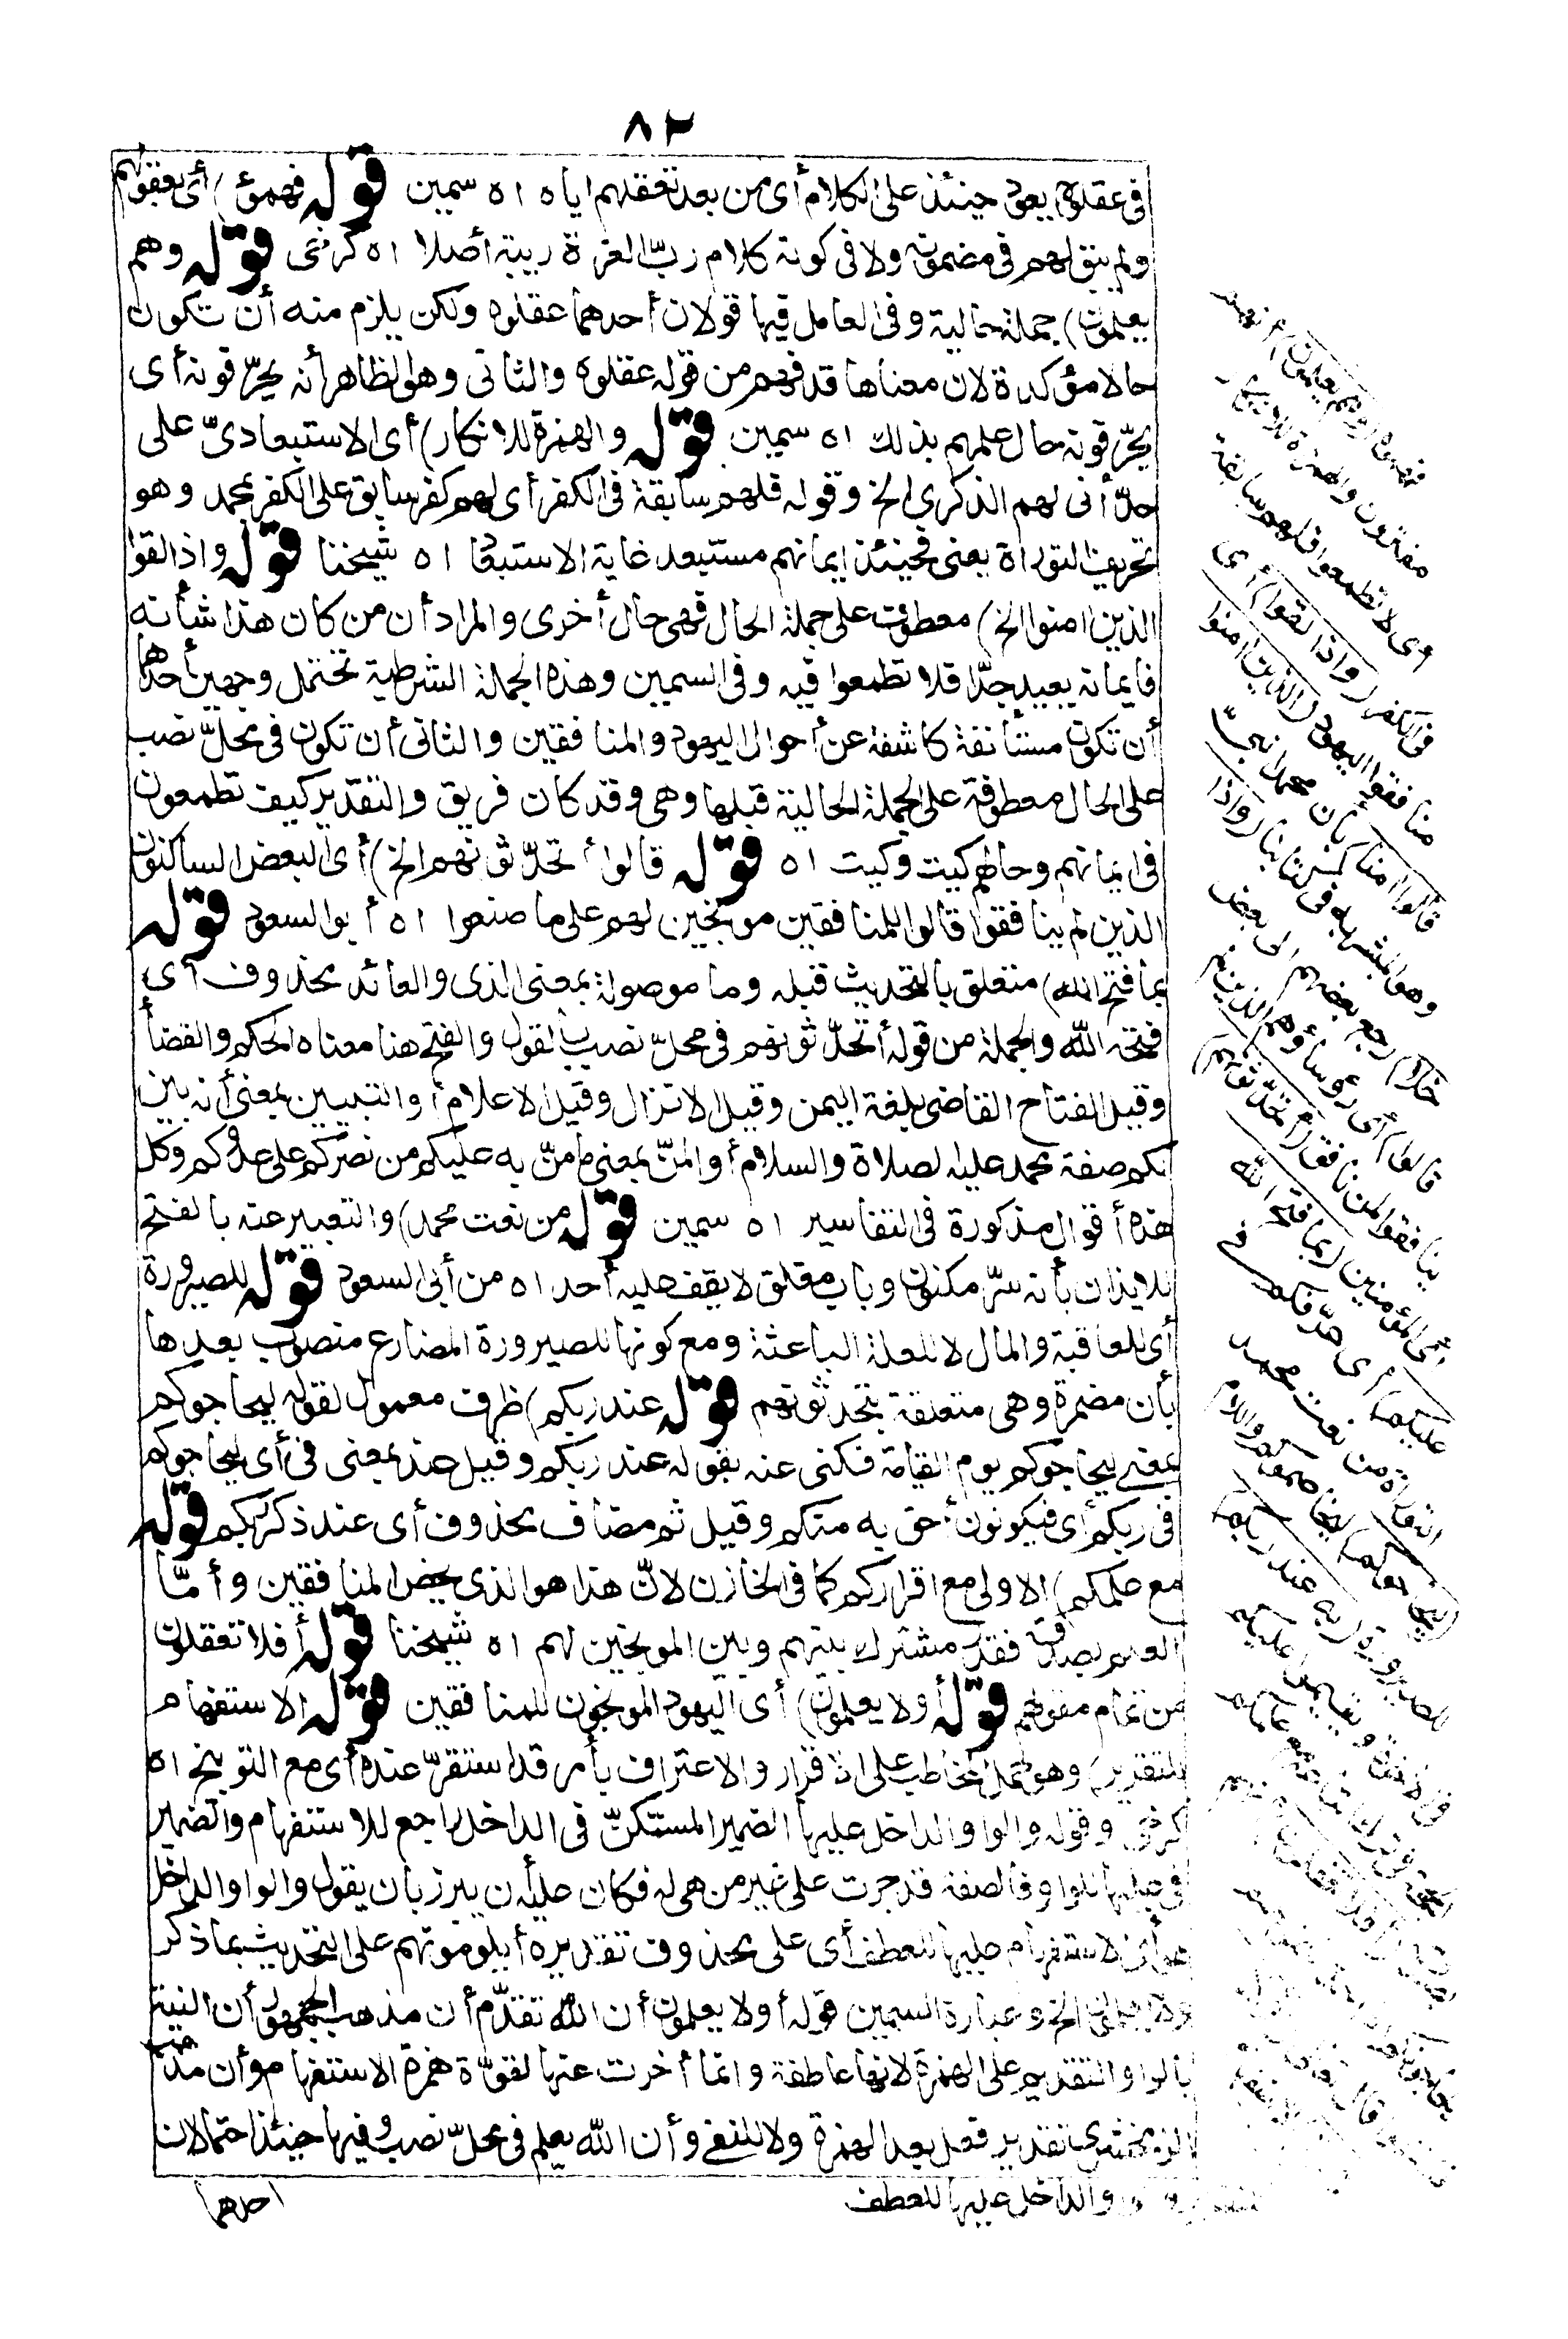 ٨٢
فى عقلوه يعود حينئذ على الكلام أى من بعد تعقلهم اياه اه سمين قوله فهموه) أى بعقولهم
ولم يبق لهم فى مضمونه ولا فى كونه كلام ربّ العزة ريبة أصلا اه كرخى قوله وهم
يعلمون) جملة حالية وفى العامل فيها قولان أحدهما عقلوه ولكن يلزم منه أن تكون
حالا مؤكدة لان معناها قد فهم من قوله عقلوه والثانى وهو الظاهر أنه يحرّفونه أى
يحرّفونه حال علمهم بذلك اه سمين قوله والهمزة للانكار) أى الاستبعادىّ على
حدّ أنى لهم الذكرى الخ وقوله فلهم سابقة فى الكفر أى لهم كفر سابق على الكفر بمحمد وهو
تحريف التوراة يعنى فحينئذ ايمانهم مستبعد غاية الاستبعاد اه شيخنا قوله واذا لقوا
الذين امنوا الخ) معطوف على جملة الحال فهى حال أخرى والمراد أن من كان هذا شأنه
فايمانه بعيد جدّا فلا تطمعوا فيه وفى السمين وهذه الجملة الشرطية تحتمل وجهين أحدهما
أن تكون مستأنفة كاشفة عن أحوال اليهود والمنافقين والثانى أن تكون فى محلّ نصب
على الحال معطوفة على الجملة الحالية قبلها وهى وقد كان فريق والتقدير كيف تطمعون
فى ايمانهم وحالهم كيت وكيت اه قوله قالوا أتحدّثونهم الخ) أى البعض الساكتون
الذين لم ينافقوا قالوا للمنافقين موبخين لهم على ما صنعوا اه أبو السعود قوله
بما فتح الله) متعلق بالتحديث قبله وما موصولة بمعنى الذى والعائد محذوف أى
فتحه الله والجملة من قوله أتحدّثونهم فى محلّ نصب بالقول والفتح هنا معناه الحكم والقضاء
وقيل الفتاح القاضى بلغة اليمن وقيل الانزال وقيل الاعلام أو التبيين بمعنى أنه بين
لكم صفة محمد عليه الصلاة والسلام أو المنّ بمعنى ما منّ به عليكم من نصركم على عدوّكم وكل
هذه أقوال مذكورة فى التفاسير اه سمين قوله من نعت محمد) والتعبير عنه بالفتح
للايذان بأنه سرّ مكنون وباب مغلق لا يقف عليه أحد اه من أبى السعود قوله للصيرورة
أى للعاقبة والمال لا للعلة الباعثة ومع كونها للصيرورة المضارع منصوب بعدها
بأن مضمرة وهى متعلقة بتحدثونهم قوله عند ربكم) ظرف معمول لقوله ليحاجوكم
بمعنى ليحاجوكم يوم القيامة فكنى عنه بقوله عند ربكم وقيل عند بمعنى فى أى ليحاجوكم
فى ربكم أى فيكونون أحق به منكم وقيل ثم مضاف محذوف أى عند ذكر ربكم قوله
مع علمكم) الاولى مع اقراركم كما فى الخازن لانّ هذا هو الذى يخص المنافقين وأمّا
العلم بصدقه فقدر مشترك بينهم وبين الموبخين لهم اه شيخنا قوله أفلا تعقلون
من تمام مقولهم قوله أولا يعلمون) أى اليهود الموبخون للمنافقين قوله الاستفهام
للتقرير) وهو حمل المخاطب على الاقرار والاعتراف بأمر قد استقرّ عنده أى مع التوبيخ اه
كرخى وقوله والواو الداخل عليها الضمير المستكنّ فى الداخل راجع للاستفهام والضمير
فى عليها للواو فالصفة قد جرت على غير من هى له فكان عليه أن يبرز بأن يقول والواو الداخل
هو أى الاستفهام عليها للعطف أى على محذوف تقديره أيلومونهم على التحديث بما ذكر
ولا يعلمون الخ وعبارة السمين قوله أولا يعلمون أن الله تقدّم أن مذهب الجمهور أن النية
بالواو التقديم على الهمزة لانها عاطفة وانما أخرت عنها لقوّة همزة الاستفهام وأن مذهب
الزمخشرى تقدير فعل بعد الهمزة ولا للنفى وأن الله يعلم فى محلّ نصب وفيها حينئذ احتمالان
أحدهما
مفترون والهمزة للانكار
أى لا تطمعوا فلهم سابقة
فى الكفر (واذا لقوا) أى
منافقوا اليهود (الذين امنوا
قالوا امنا) بأن محمدا نبىّ
وهو المبشر به فى كتابنا (واذا
خلا) رجع بعضهم الى بعض
قالوا) أى رؤساؤهم الذين لم
ينافقوا لمن نافق (أتحدّثونهم)
أى المؤمنين (بما فتح الله
عليكم) أى عرّفكم فى
التوراة من نعت محمد
للصيرورة (به عند ربكم)
والداخل عليها للعطف